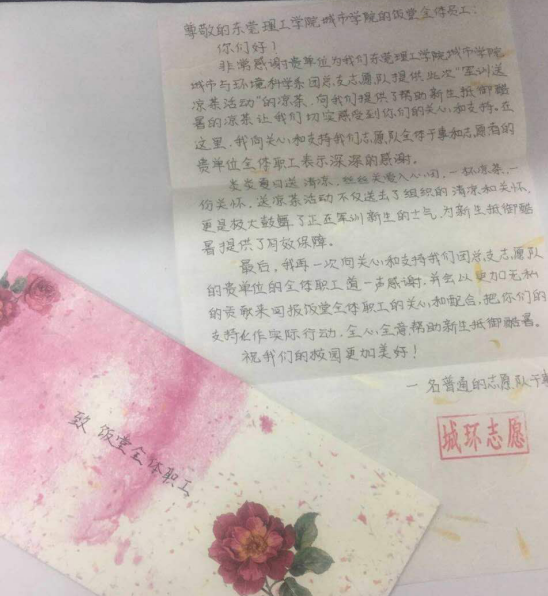 尊敬的东莞理工学院城市学院的饭堂全体员工:
你们好!
非常感谢贵单位为我们东莞理工学院城市学院
城市与环境科学系团总支志愿队提供此次“军训送
凉茶活动”的凉茶,向我们提供了帮助新生抵御酷
暑的凉茶让我们切实感受到你们的关心和支持。在
这里,我向关心和支持我们志愿队全体干事和志愿者的
贵单位全体职工表示深深的感谢。
炎炎夏日送清凉,丝丝关爱入心间,一杯凉茶,一
份关怀,送凉茶活动不仅送去了组织的清凉和关怀,
更是极大鼓舞了正在军训新生的士气,为新生抵御酷
暑提供了有效保障。
最后,我再一次向关心和支持我们团总支志愿队
的贵单位的全体职工道一声感谢,并会以更加无私
的贡献来回报饭堂全体职工的关心和配合,把你们的
支持化作实际行动,全心全意帮助新生抵御酷暑。
祝我们的校园更加美好!
一名普通的志愿队干事
城环志愿
致 饭堂全体职工